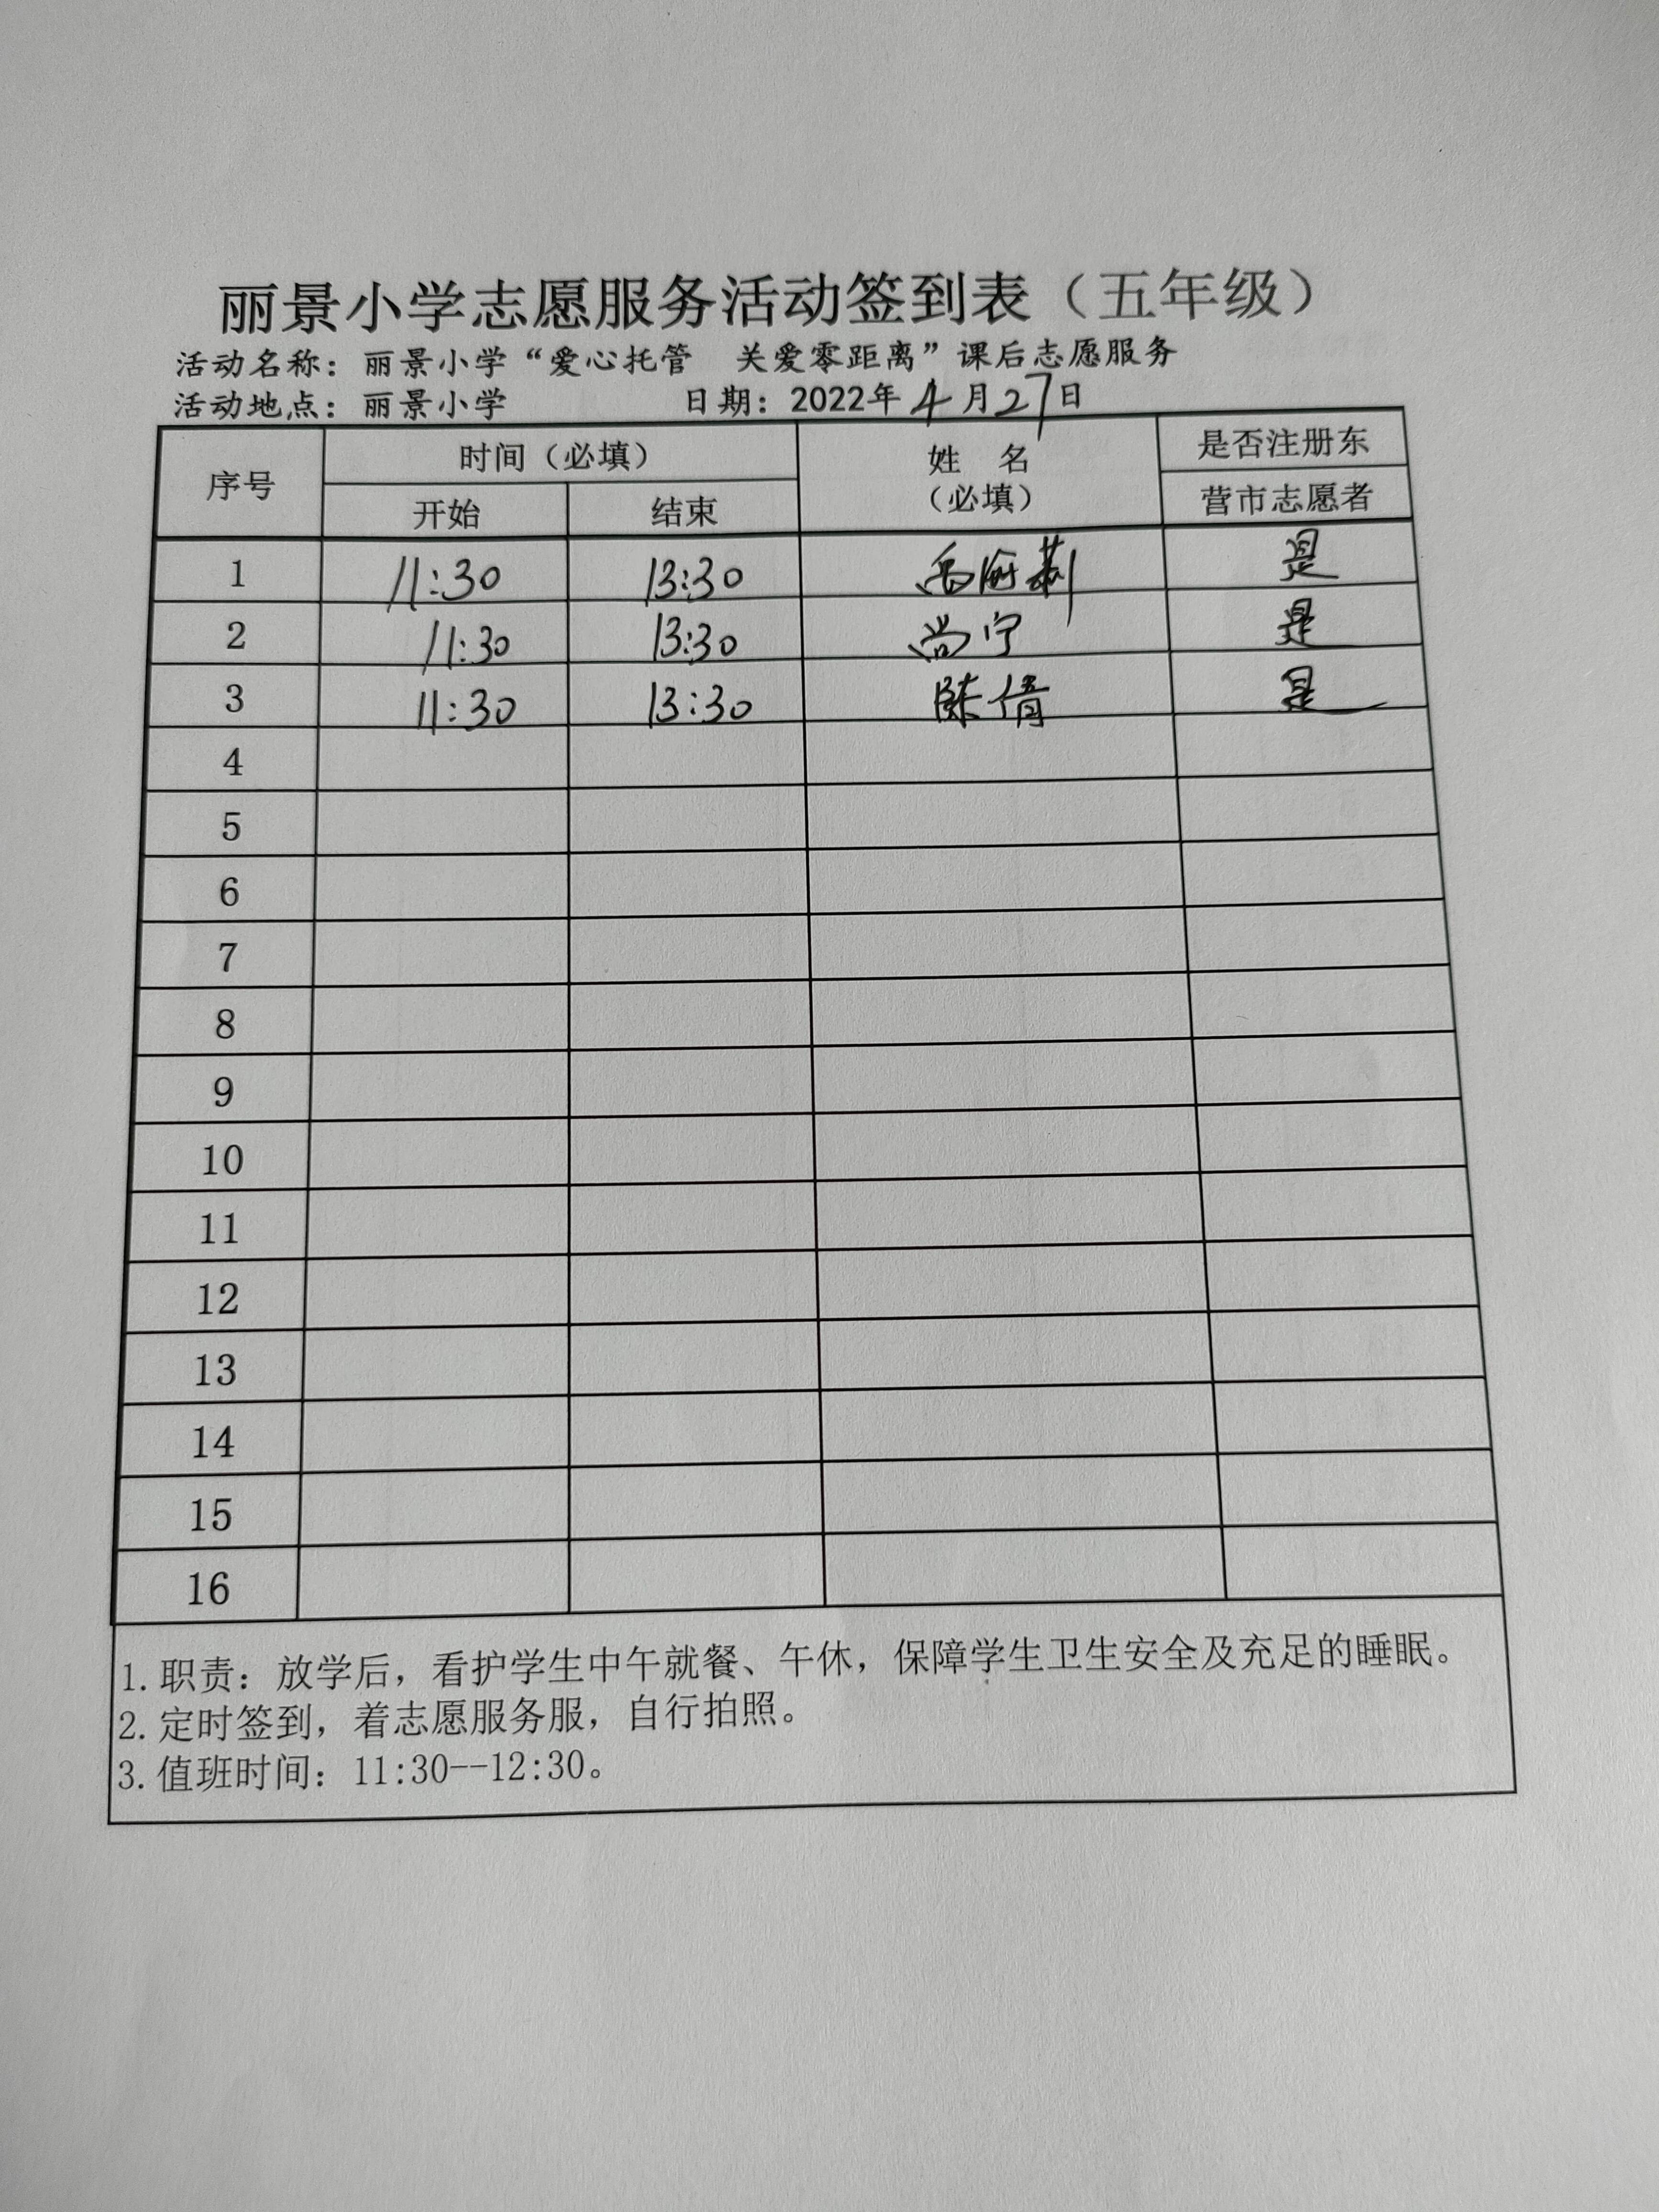 丽景小学志愿服务活动签到表（五年级）
活动名称：丽景小学“爱心托管 关爱零距离”课后志愿服务
活动地点：丽景小学 日期：2022年4月27日
序号 时间（必填） 姓 名 是否注册东
开始 结束 （必填） 营市志愿者
1 11:30 13:30 是
2 11:30 13:30 尚宁 是
3 11:30 13:30 陈倩 是
4
5
6
7
8
9
10
11
12
13
14
15
16
1. 职责：放学后，看护学生中午就餐、午休，保障学生卫生安全及充足的睡眠。
2. 定时签到，着志愿服务服，自行拍照。
3. 值班时间：11:30--12:30。